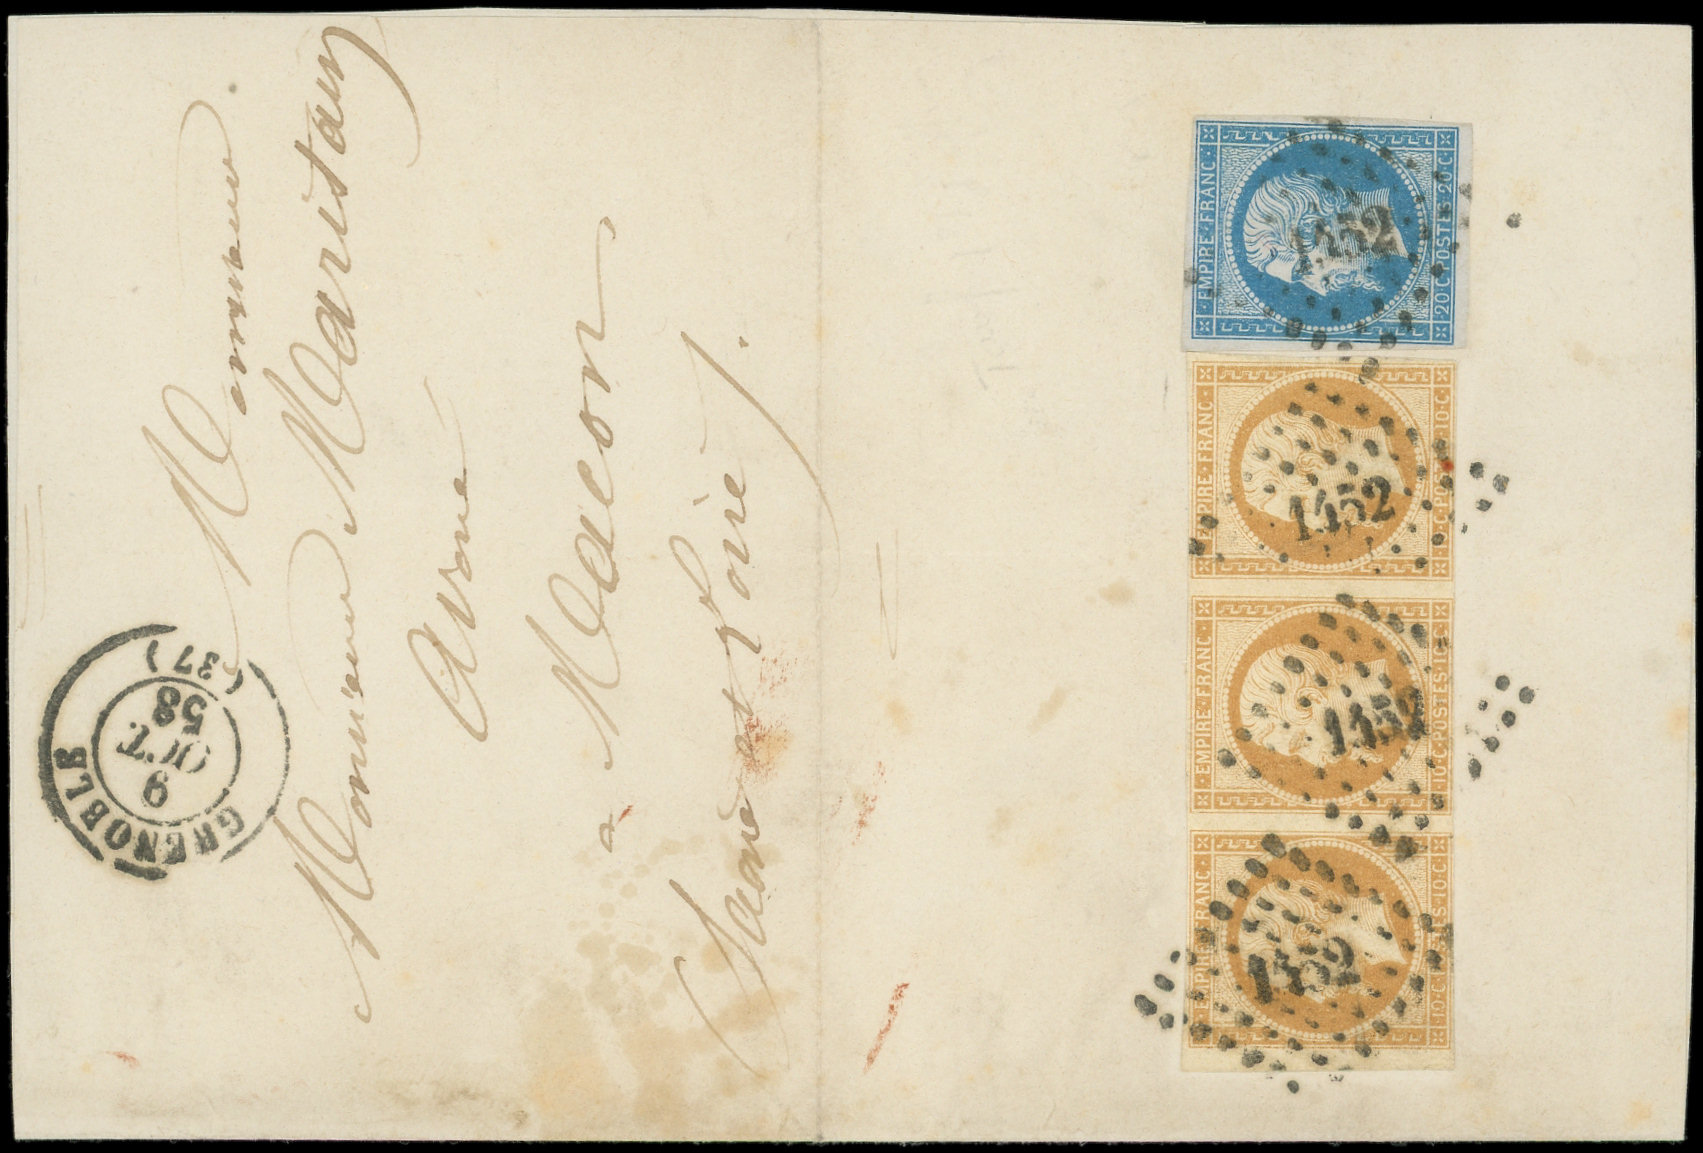 Monsieur
Monsieur Maritain
Avoué
a Macon
Saone et Loire /.
GRENOBLE
9
OCT.
58
(37)
EMPIRE·FRANC·
20·C·POSTES·20·C·
1452
EMPIRE·FRANC·
10·C·POSTES·10·C·
1452
EMPIRE·FRANC·
10·C·POSTES·10·C·
1452
EMPIRE·FRANC·
10·C·POSTES·10·C·
1452